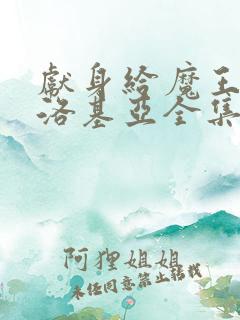 獻身給魔王
洛基亞全集
阿狸姐姐
未任同意禁止轉載